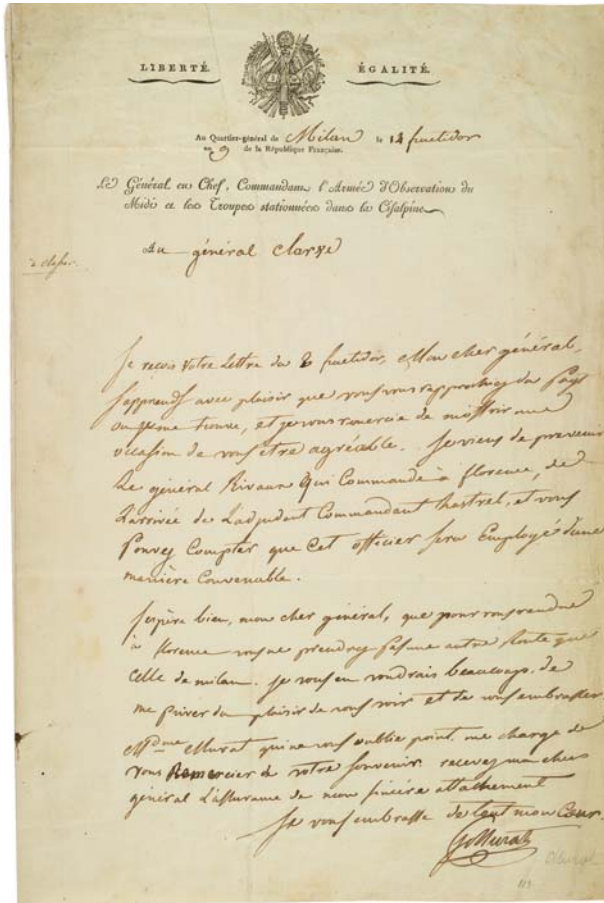 LIBERTÉ. ÉGALITÉ.
Au Quartier-général de Milan le 14 fructidor
an 9 de la République Française.
Le Général en Chef, Commandant l'Armée d'Observation du
Midi et les Troupes stationnées dans la Cisalpine
à classer.
Au général Clarke
Je reçois votre lettre du 2 fructidor, Mon cher général,
J'apprends avec plaisir que vous vous rapprochez du pays
où je me trouve, et je vous remercie de m'offrir une
occasion de vous être agréable. Je viens de prevenir
Le général Rivaux qui Commande à florence, de
L'arrivée de L'adjudant Commandant hastrel, et vous
Pouvez Compter que Cet officier sera Employé d'une
manière Convenable.
J'espère bien, mon cher général, que pour vous rendre
à florence vous ne prendrez pas une autre route que
Celle de milan. Je vous en voudrais beaucoup de
me priver du plaisir de vous voir et de vous embrasser
Mdme Murat qui ne vous oublie point me charge de
vous Remercier de votre souvenir. recevez mon cher
général L'assurance de mon sincère attachement
Je vous embrasse de tout mon Cœur.
JMurat
113